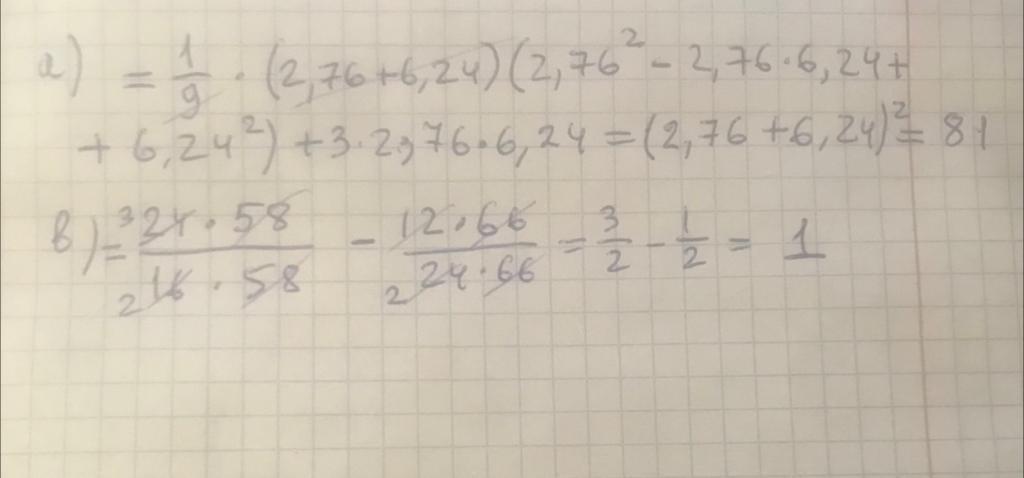 а) = 1/9 · (2,76 + 6,24)(2,76² − 2,76·6,24 +
+ 6,24²) + 3·2,76·6,24 = (2,76 + 6,24)² = 81
в) = ³24·58/₂16·58 − 12·66/₂24·66 = 3/2 − 1/2 = 1